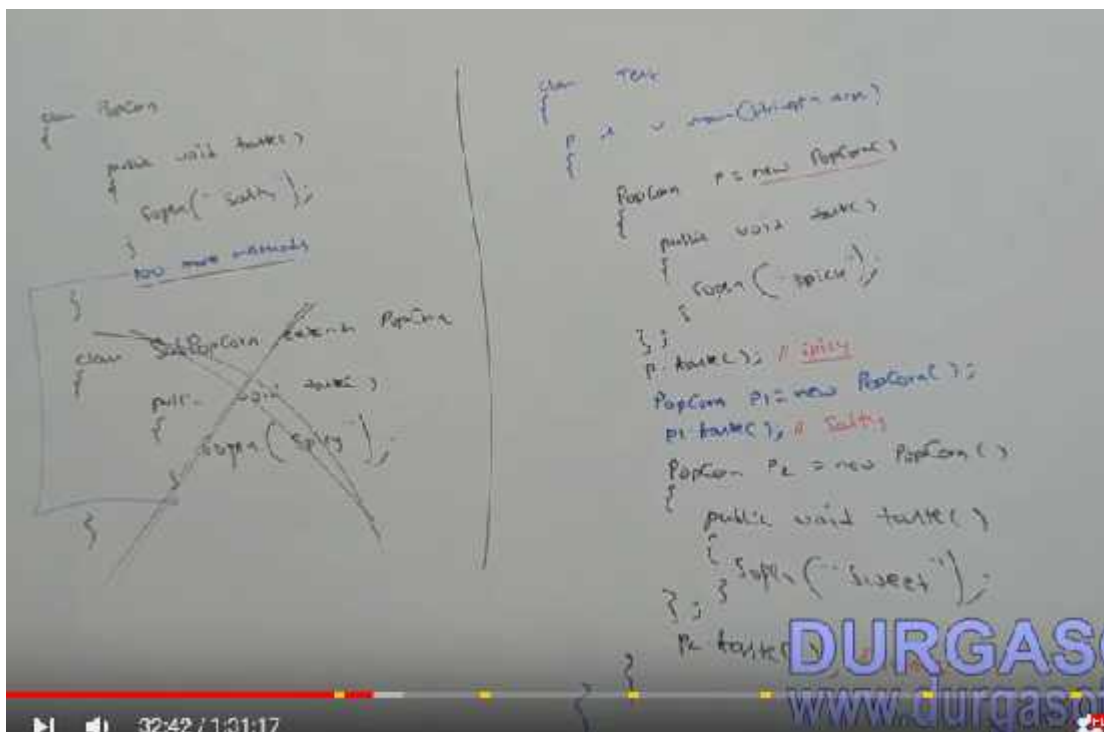 class PopCorn
{
public void taste()
{
Sopln("Salty");
}
100 more methods
}
class SubPopCorn extends PopCorn
{
public void taste()
{
Sopln("Spicy");
}
}
class Test
{
p s v main(String[] args)
{
PopCorn p = new PopCorn()
{
public void taste()
{
Sopln("Spicy");
}
};
p.taste(); // spicy
PopCorn p1 = new PopCorn();
p1.taste(); // Salty
PopCorn p2 = new PopCorn()
{
public void taste()
{
Sopln("Sweet");
}
};
p2.taste()
}
}
DURGASO
www.durgasof
32:42 / 1:31:17